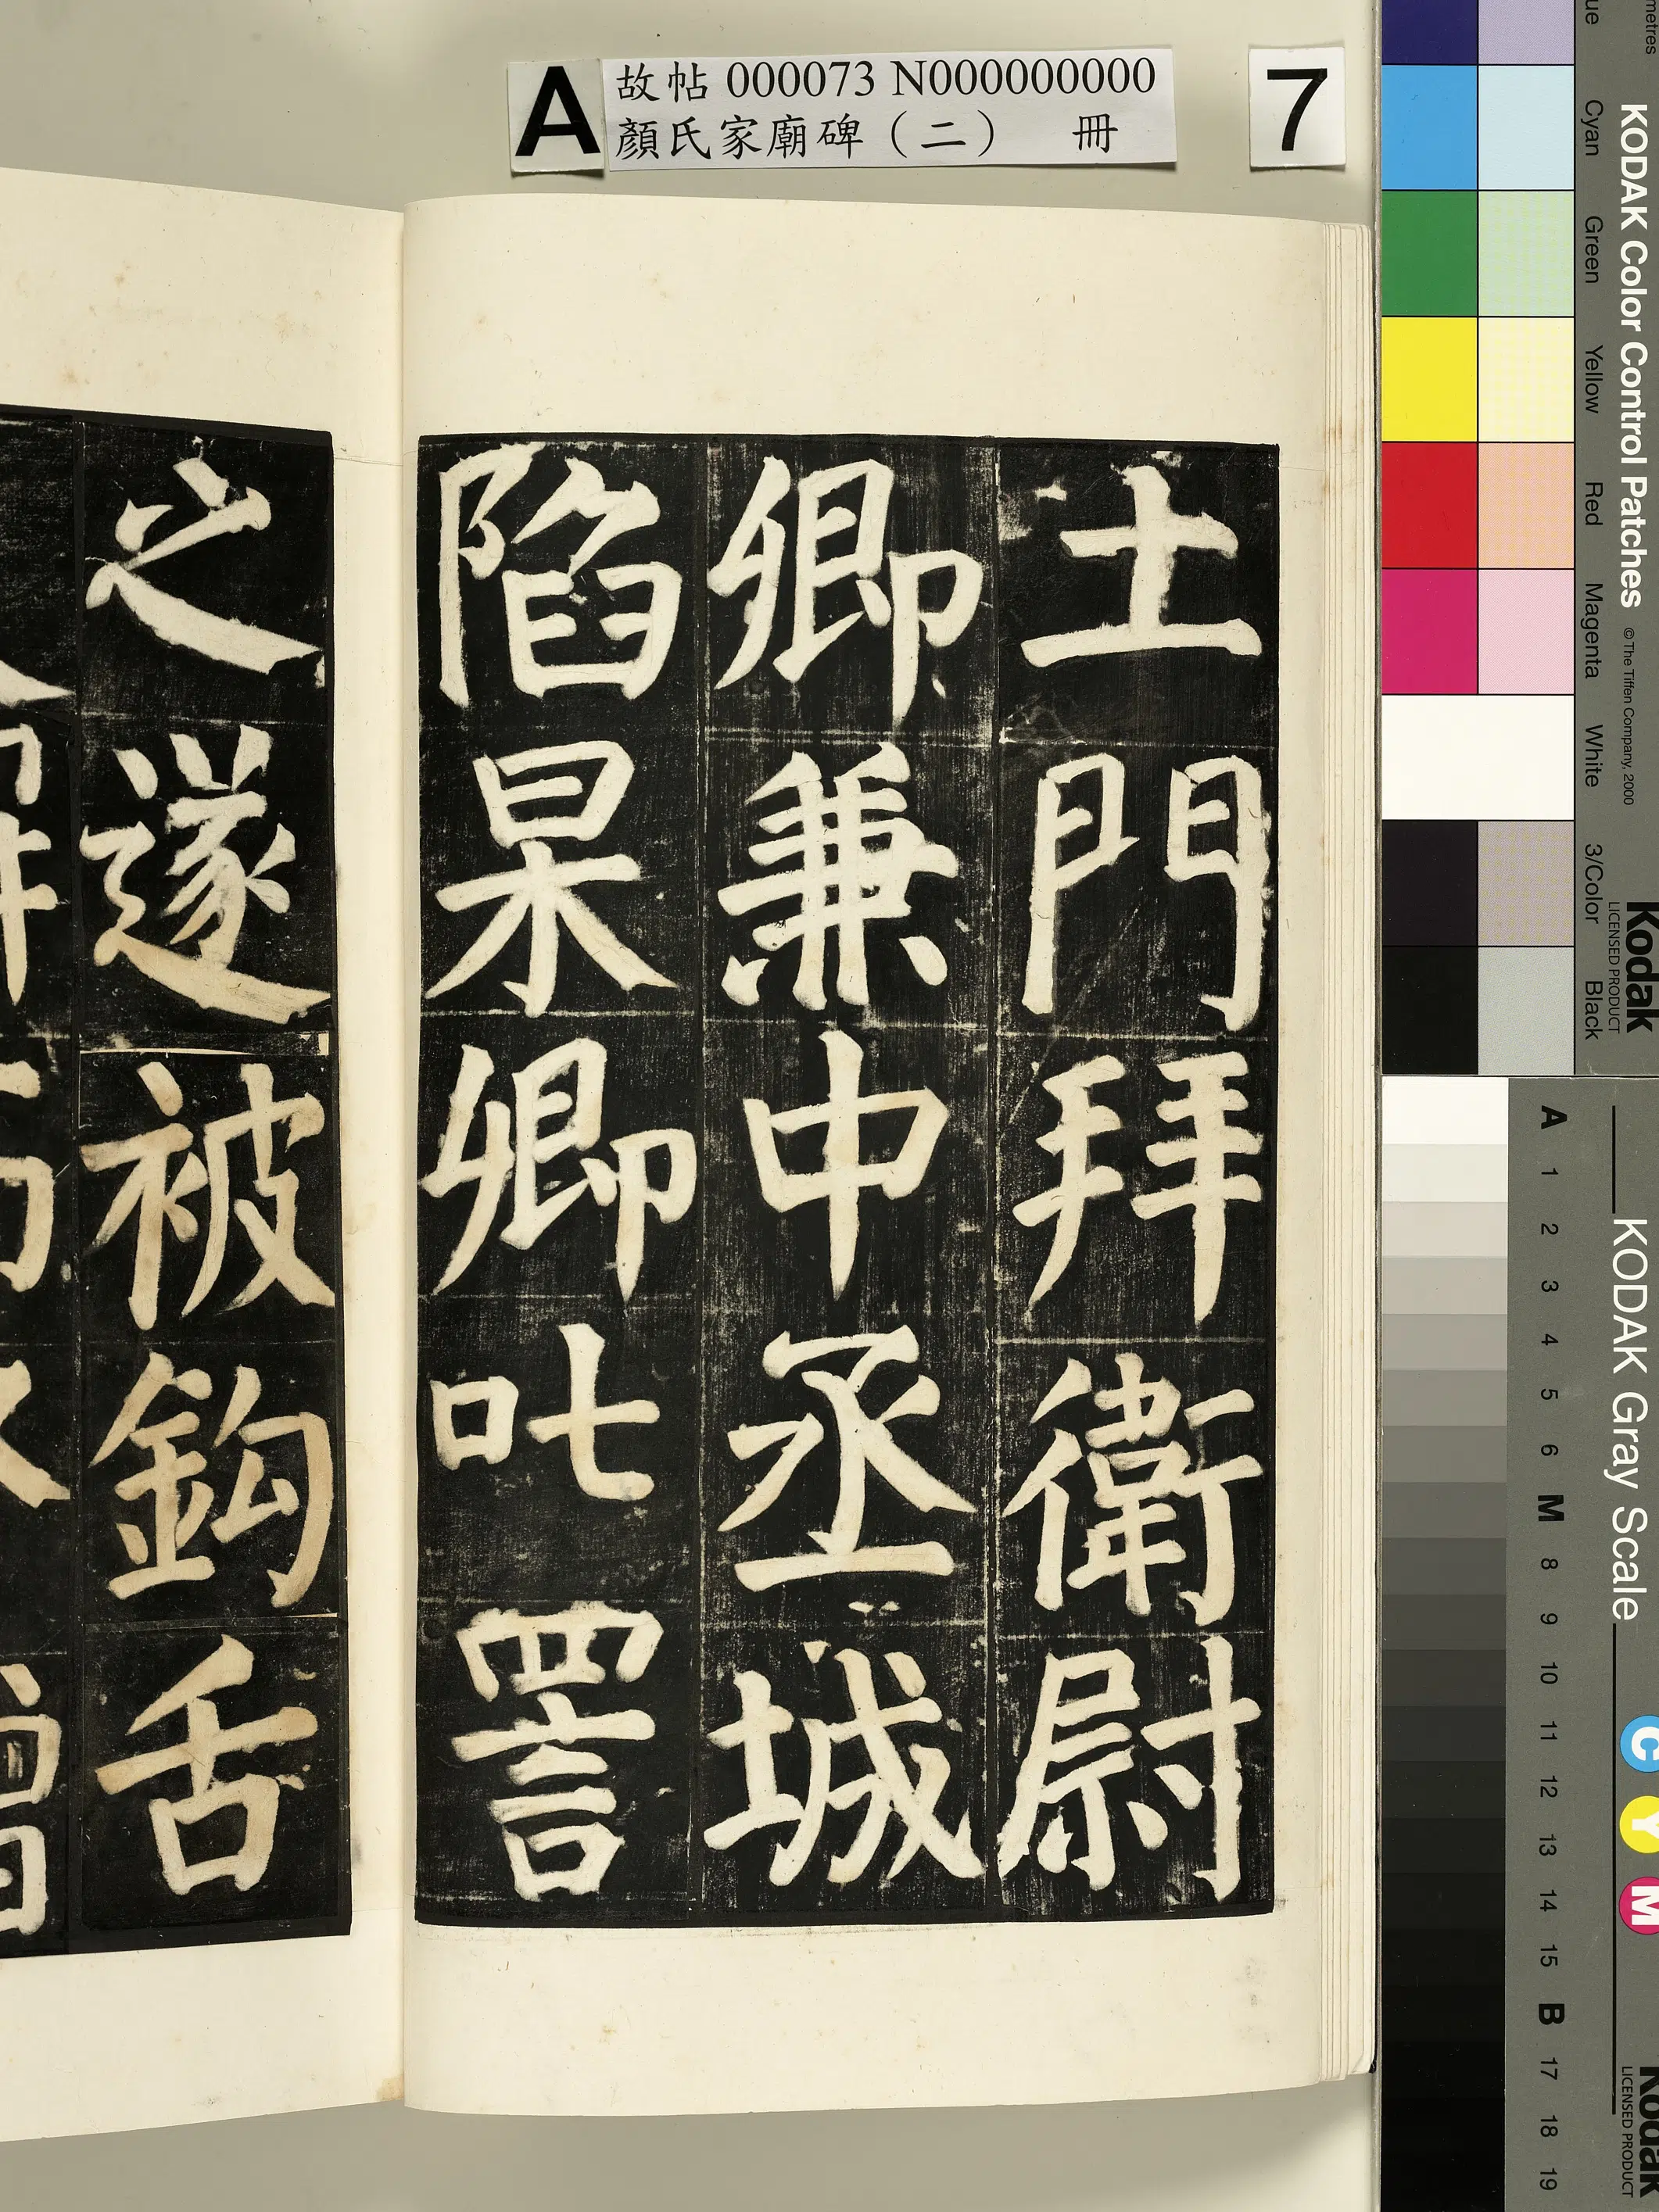 A 故帖 000073 N000000000 7
顏氏家廟碑（二） 冊
土門拜衛尉
卿兼中丞城
陷杲卿叱詈
之遂被鈎舌
KODAK Color Control Patches
© The Tiffen Company, 2000
Kodak
LICENSED PRODUCT
Cyan Green Yellow Red Magenta White 3/Color Black
KODAK Gray Scale
C Y M
Kodak
LICENSED PRODUCT
A 1 2 3 4 5 6 M 8 9 10 11 12 13 14 15 B 17 18 19